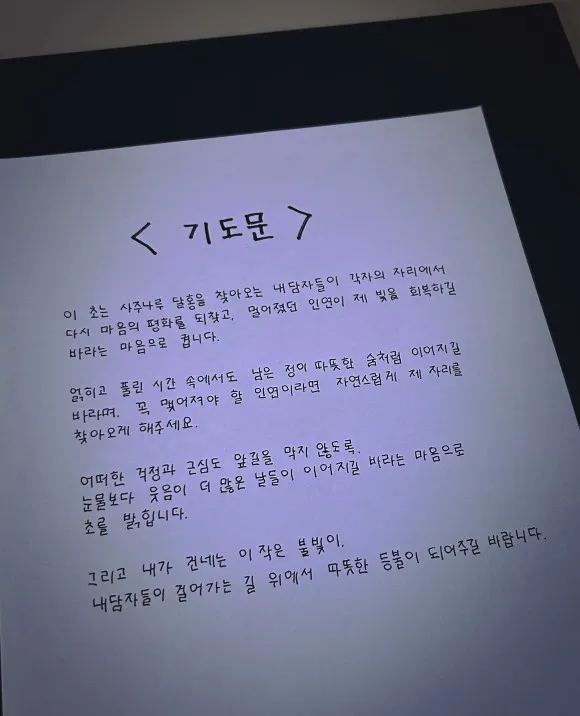 < 기도문 >
이 초는 사주나루 달홍을 찾아오는 내담자들이 각자의 자리에서
다시 마음의 평화를 되찾고, 멀어졌던 인연이 제 빛을 회복하길
바라는 마음으로 켭니다.
얽히고 풀린 시간 속에서도 남은 정이 따뜻한 숨처럼 이어지길
바라며, 꼭 맺어져야 할 인연이라면 자연스럽게 제 자리를
찾아오게 해주세요.
어떠한 걱정과 근심도 앞길을 막지 않도록.
눈물보다 웃음이 더 많은 날들이 이어지길 바라는 마음으로
초를 밝힙니다.
그리고 내가 건네는 이 작은 불빛이,
내담자들이 걸어가는 길 위에서 따뜻한 등불이 되어주길 바랍니다.